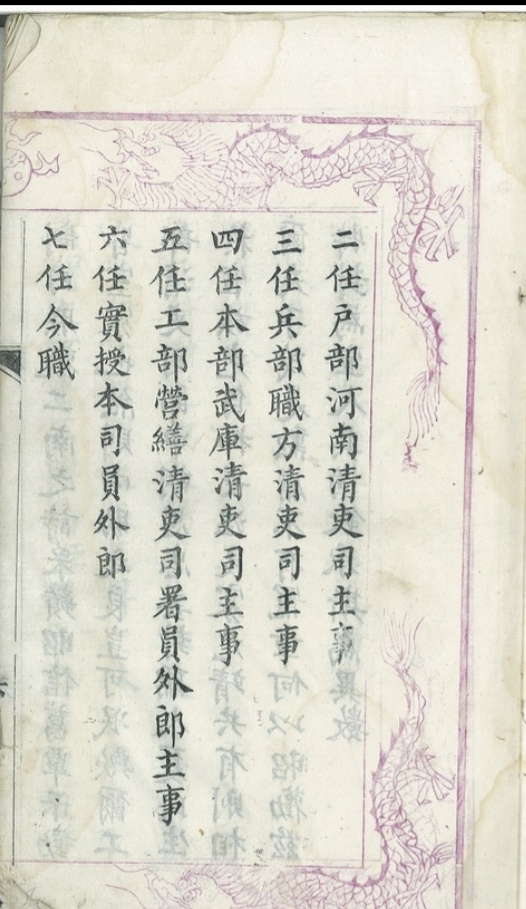 二任戶部河南清吏司主事
三任兵部職方清吏司主事
四任本部武庫清吏司主事
五任工部營繕清吏司署員外郎主事
六任實授本司員外郎
七任今職